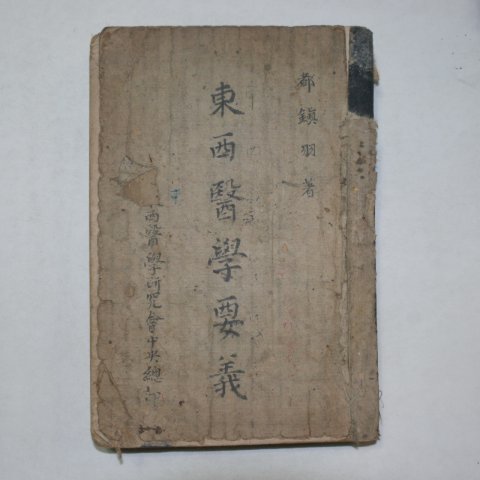 都鎭羽著
東西醫學要義
西醫學硏究會中央總部